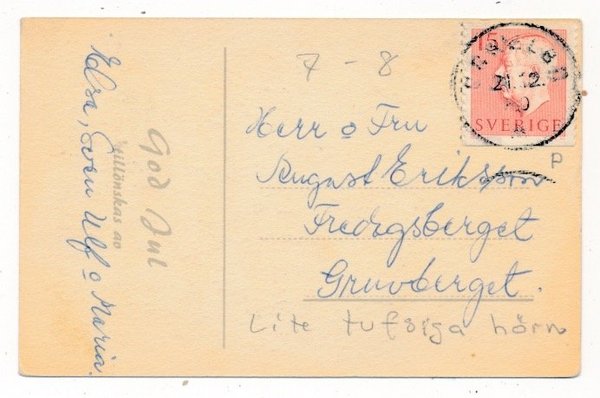 God Jul
tillönskas av
Elsa, Sven Ulf o Maria.
7 - 8
15
21.12.
SVERIGE
P
Herr o Fru
August Eriksson
Fredgsberget
Gruvberget.
Lite tufsiga hörn